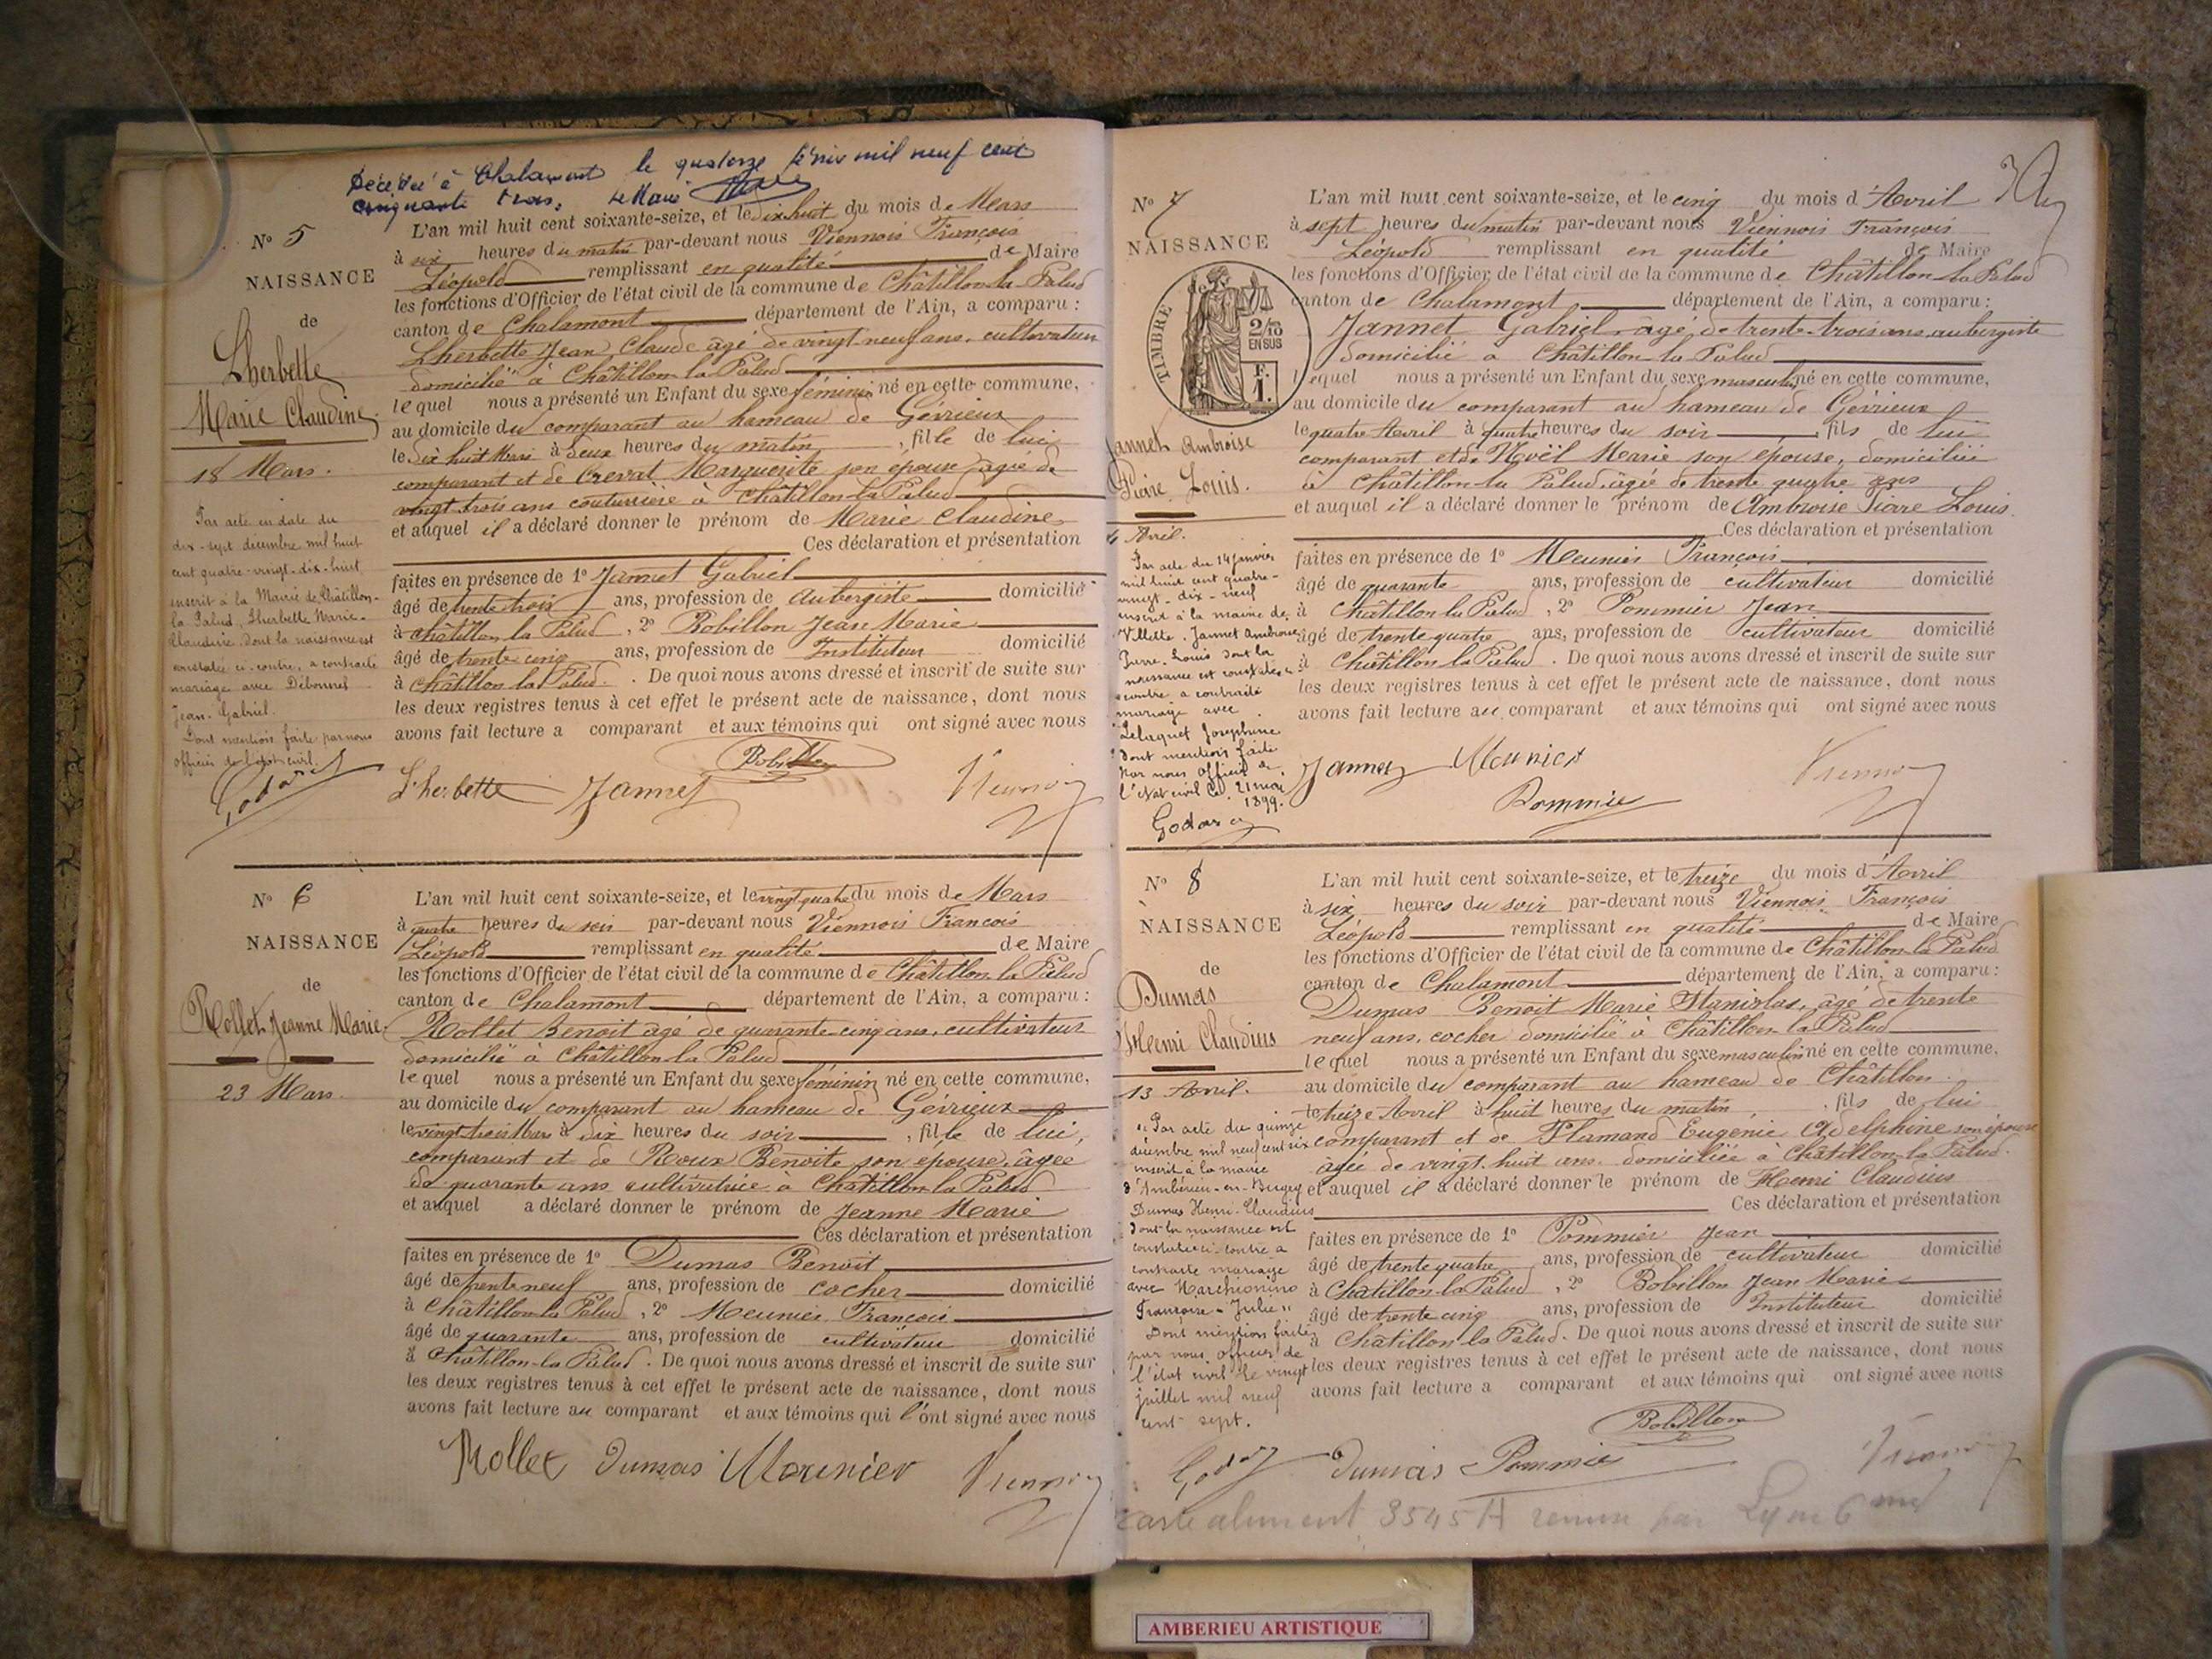 Décédée à Chalamont le quatorze mil neuf cent
cinquante trois. Le Maire
N° 5
NAISSANCE
de
Lherbette
Marie Claudine
18 Mars.
Par acte en date du
dix-sept décembre mil huit
cent quatre-vingt-dix-huit
inscrit à la Mairie de Châtillon-
la Palud, Lherbette Marie-
Claudine, dont la naissance est
constatée ci-contre, a contracté
mariage avec
Jean-Gabriel.
Dont mention faite par nous
officier de l'état civil.
L'an mil huit cent soixante-seize, et le dix huit du mois de Mars
à six heures du matin par-devant nous Viennois François
Léopold remplissant en qualité de Maire
les fonctions d'Officier de l'état civil de la commune de Châtillon-la-Palud
canton de Chalamont département de l'Ain, a comparu :
Lherbette Jean Claude âgé de vingt neuf ans, cultivateur
domicilié à Châtillon la Palud
lequel nous a présenté un Enfant du sexe féminin né en cette commune,
au domicile du comparant au hameau de Gévrieux
le dix huit Mars à deux heures du matin, fille de lui
comparant et de Crevat Marguerite son épouse âgée de
vingt trois ans couturière à Châtillon-la Palud
et auquel il a déclaré donner le prénom de Marie Claudine
Ces déclaration et présentation
faites en présence de 1° Jannet Gabriel
âgé de trente trois ans, profession de Aubergiste domicilié
à Châtillon la Palud, 2° Bobillon Jean Marie
âgé de trente-cinq ans, profession de Instituteur domicilié
à Châtillon la Palud. De quoi nous avons dressé et inscrit de suite sur
les deux registres tenus à cet effet le présent acte de naissance, dont nous
avons fait lecture a comparant et aux témoins qui ont signé avec nous
Bobillon
Lherbette Jannet Viennois
N° 6
NAISSANCE
de
Rollet Jeanne Marie
23 Mars.
L'an mil huit cent soixante-seize, et le vingt quatre du mois de Mars
à quatre heures du soir par-devant nous Viennois François
Léopold remplissant en qualité de Maire
les fonctions d'Officier de l'état civil de la commune de Châtillon la Palud
canton de Chalamont département de l'Ain, a comparu :
Rollet Benoit âgé de quarante-cinq ans, cultivateur
domicilié à Châtillon-la Palud
lequel nous a présenté un Enfant du sexe féminin né en cette commune,
au domicile du comparant au hameau de Gévrieux
le vingt trois Mars à dix heures du soir, fille de lui,
comparant et de Roux Benoite son épouse, âgée
de quarante ans cultivatrice à Châtillon la Palud
et auquel a déclaré donner le prénom de Jeanne Marie
Ces déclaration et présentation
faites en présence de 1° Dumas Benoit
âgé de trente neuf ans, profession de cocher domicilié
à Châtillon la Palud, 2° Meunier François
âgé de quarante ans, profession de cultivateur domicilié
à Châtillon-la Palud. De quoi nous avons dressé et inscrit de suite sur
les deux registres tenus à cet effet le présent acte de naissance, dont nous
avons fait lecture au comparant et aux témoins qui l'ont signé avec nous
Rollet Dumas Meunier Viennois
N° 7
NAISSANCE
TIMBRE
2/10
EN SUS
F.
1.
Jannet Ambroise
Pierre Louis.
4 Avril.
Par acte du 14 janvier
mil huit cent quatre-
vingt-dix-neuf
inscrit à la mairie de
Villette, Jannet Ambroise
Pierre-Louis dont la
naissance est constatée ci-
contre a contracté
mariage avec
Joséphine
dont mention faite
par nous officier de
l'état civil le 21 mai
1899.
L'an mil huit cent soixante-seize, et le cinq du mois d'Avril
à sept heures du matin par-devant nous Viennois François
Léopold remplissant en qualité de Maire
les fonctions d'Officier de l'état civil de la commune de Châtillon la Palud
canton de Chalamont département de l'Ain, a comparu :
Jannet Gabriel, âgé de trente-trois ans, aubergiste
domicilié à Châtillon-la Palud
lequel nous a présenté un Enfant du sexe masculin né en cette commune,
au domicile du comparant au hameau de Gévrieux
le quatre Avril à quatre heures du soir, fils de lui
comparant et de Noël Marie son épouse, domiciliée
à Châtillon-la Palud, âgée de trente quatre ans
et auquel il a déclaré donner le prénom de Ambroise Pierre Louis.
Ces déclaration et présentation
faites en présence de 1° Meunier François
âgé de quarante ans, profession de cultivateur domicilié
à Châtillon la Palud, 2° Pommier Jean
âgé de trente quatre ans, profession de cultivateur domicilié
à Châtillon la Palud. De quoi nous avons dressé et inscrit de suite sur
les deux registres tenus à cet effet le présent acte de naissance, dont nous
avons fait lecture au comparant et aux témoins qui ont signé avec nous
Jannet Meunier Viennois
Pommier
N° 8
NAISSANCE
de
Dumas
Henri Claudius
13 Avril.
"Par acte du quinze
décembre mil neuf cent six
inscrit à la mairie
d'Ambérieu-en-Bugey
Dumas Henri-Claudius
dont la naissance est
constatée ci-contre a
contracté mariage
avec Marchionino
Françoise-Julie"
Dont mention faite
par nous officier de
l'état civil le vingt
juillet mil neuf
cent sept.
L'an mil huit cent soixante-seize, et le treize du mois d'Avril
à six heures du soir par-devant nous Viennois François
Léopold remplissant en qualité de Maire
les fonctions d'Officier de l'état civil de la commune de Châtillon la Palud
canton de Chalamont département de l'Ain, a comparu :
Dumas Benoit Marie Stanislas, âgé de trente
neuf ans, cocher domicilié à Châtillon la Palud
lequel nous a présenté un Enfant du sexe masculin né en cette commune,
au domicile du comparant au hameau de Châtillon
le treize Avril à huit heures du matin, fils de lui
comparant et de Flamand Eugénie Adelphine son épouse
âgée de vingt huit ans domiciliée à Châtillon-la Palud.
et auquel il a déclaré donner le prénom de Henri Claudius
Ces déclaration et présentation
faites en présence de 1° Pommier Jean
âgé de trente quatre ans, profession de cultivateur domicilié
à Châtillon-la Palud, 2° Bobillon Jean Marie
âgé de trente cinq ans, profession de Instituteur domicilié
à Châtillon la Palud. De quoi nous avons dressé et inscrit de suite sur
les deux registres tenus à cet effet le présent acte de naissance, dont nous
avons fait lecture a comparant et aux témoins qui ont signé avec nous
Bobillon
Dumas Pommier Viennois
carte aliment 3545 H remise par Lyon 6
AMBERIEU ARTISTIQUE